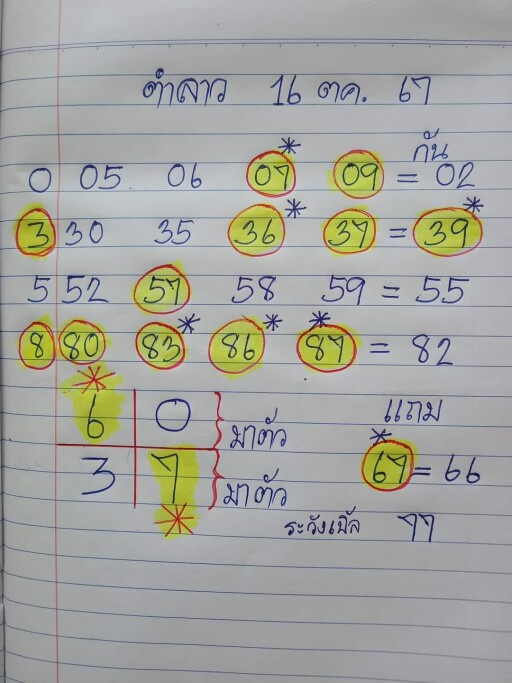 ตำลาว 16 ตค. 67
กัน
0 05 06 07* 09 = 02
3 30 35 36* 37 = 39*
5 52 57 58 59 = 55
8 80 83* 86* 87* = 82
6 0 } มาตัว แถม
3 7 } มาตัว *67 = 66
ระวังเบิ้ล 77